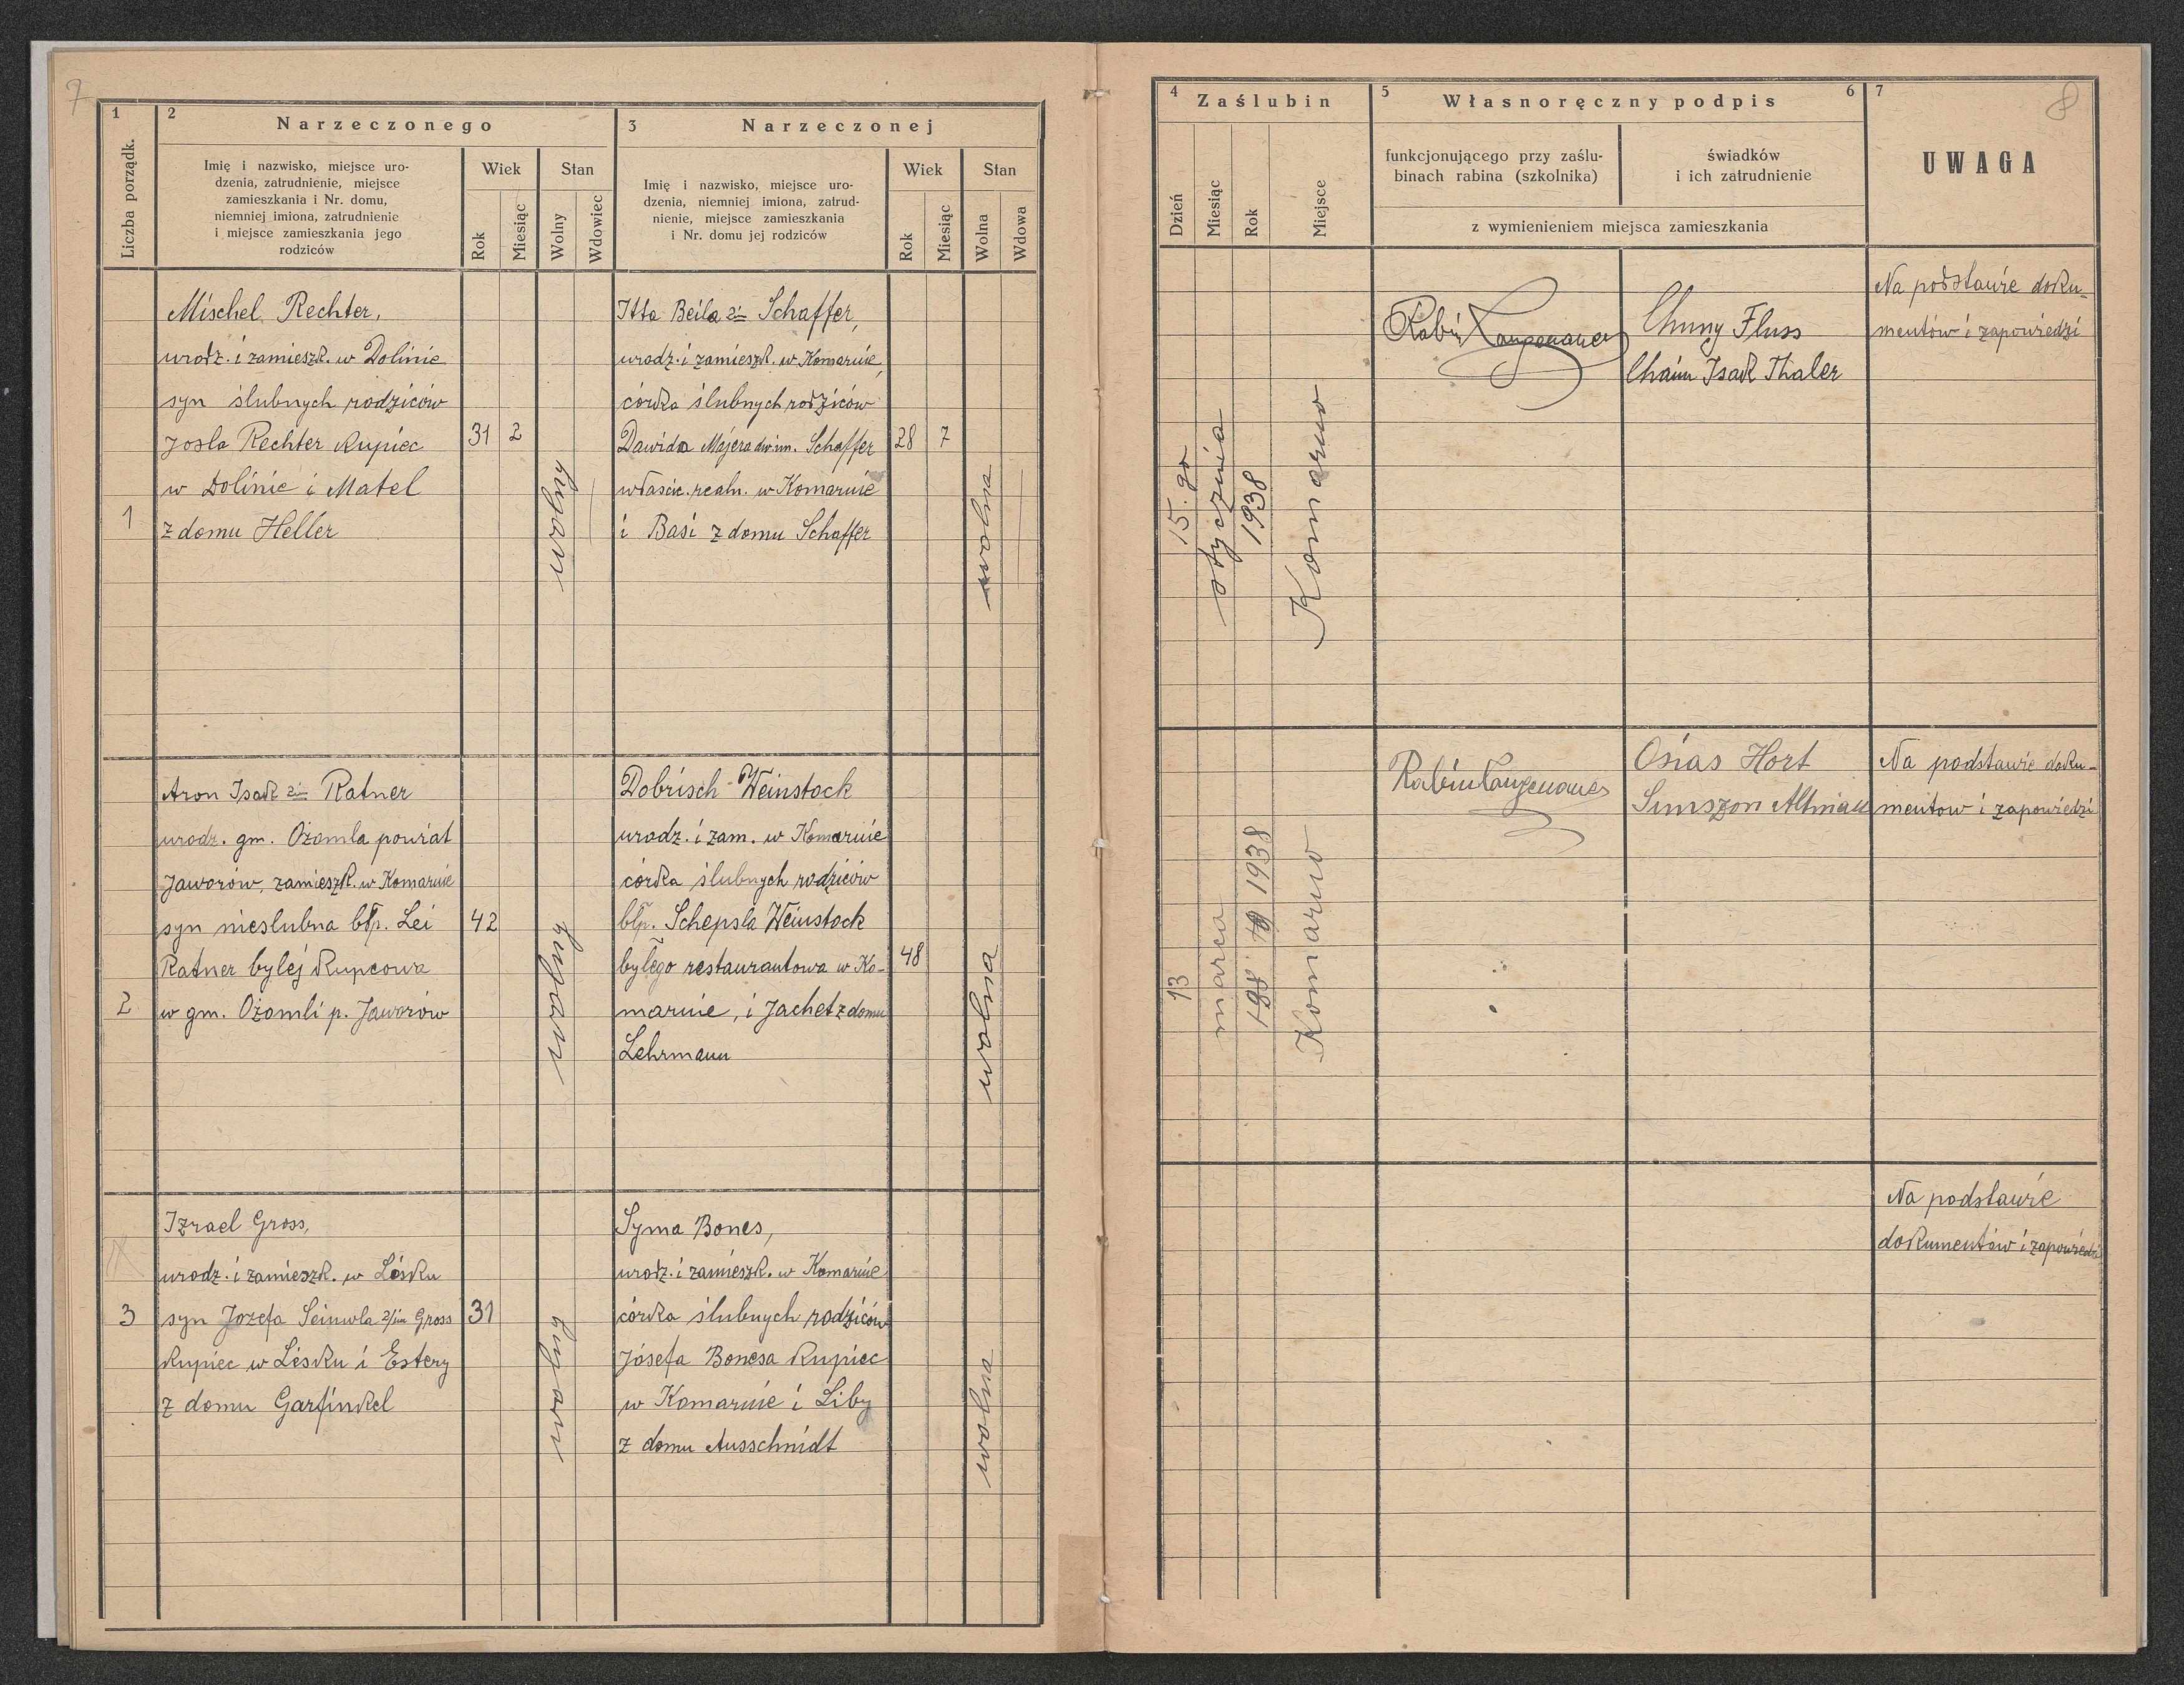 7
1
Liczba porządk.
2
Narzeczonego
Imię i nazwisko, miejsce uro-
dzenia, zatrudnienie, miejsce
zamieszkania i Nr. domu,
niemniej imiona, zatrudnienie
i miejsce zamieszkania jego
rodziców
Wiek
Rok
Miesiąc
Stan
Wolny
Wdowiec
3
Narzeczonej
Imię i nazwisko, miejsce uro-
dzenia, niemniej imiona, zatrud-
nienie, miejsce zamieszkania
i Nr. domu jej rodziców
Wiek
Rok
Miesiąc
Stan
Wolna
Wdowa
1
Mischel Rechter,
urodz. i zamieszk. w Dolinie
syn ślubnych rodziców
Josla Rechter kupiec
w Dolinie i Matel
z domu Heller
31
2
wolny
Itta Beila 2im Schaffer,
urodz. i zamieszk. w Komarnie,
córka ślubnych rodziców
Dawida Majera dw. im. Schaffer
właścic. realn. w Komarnie
i Basi z domu Schaffer
28
7
wolna
2
Aron Isak 2im Ratner
urodz. gm. Ożomla powiat
Jaworów, zamieszk. w Komarnie
syn nieslubna błp. Lei
Ratner byłej kupcowa
w gm. Ożomli p. Jaworów
42
wolny
Dobrisch Weinstock
urodz. i zam. w Komarnie
córka ślubnych rodziców
błp. Schepsla Weinstock
byłego restaurantowa w Ko-
marnie, i Jachet z domu
Lehrmann
48
wolna
3
Izrael Gross,
urodz. i zamieszk. w Lesku
syn Jozefa Seinwla 2/im Gross
kupiec w Lesku i Estery
z domu Garfinkel
31
wolny
Syma Bones,
urodz. i zamieszk. w Komarnie
córka ślubnych rodziców
Józefa Bonesa kupiec
w Komarnie i Liby
z domu Ausschnidt
wolna
8
4
Zaślubin
Dzień
Miesiąc
Rok
Miejsce
5
Własnoręczny podpis
6
funkcjonującego przy zaślu-
binach rabina (szkolnika)
świadków
i ich zatrudnienie
z wymienieniem miejsca zamieszkania
7
UWAGA
15. go
stycznia
1938
Komarno
Rabin Langenauer
Chuny Fluss
Chaim Isak Thaler
Na podstawie doku-
mentów i zapowiedzi
13
marca
1938
Komarno
Rabin Langenauer
Osias Hort
Na podstawie doku-
mentow i zapowiedzi
Na podstawie
dokumentów i zapowiedzi